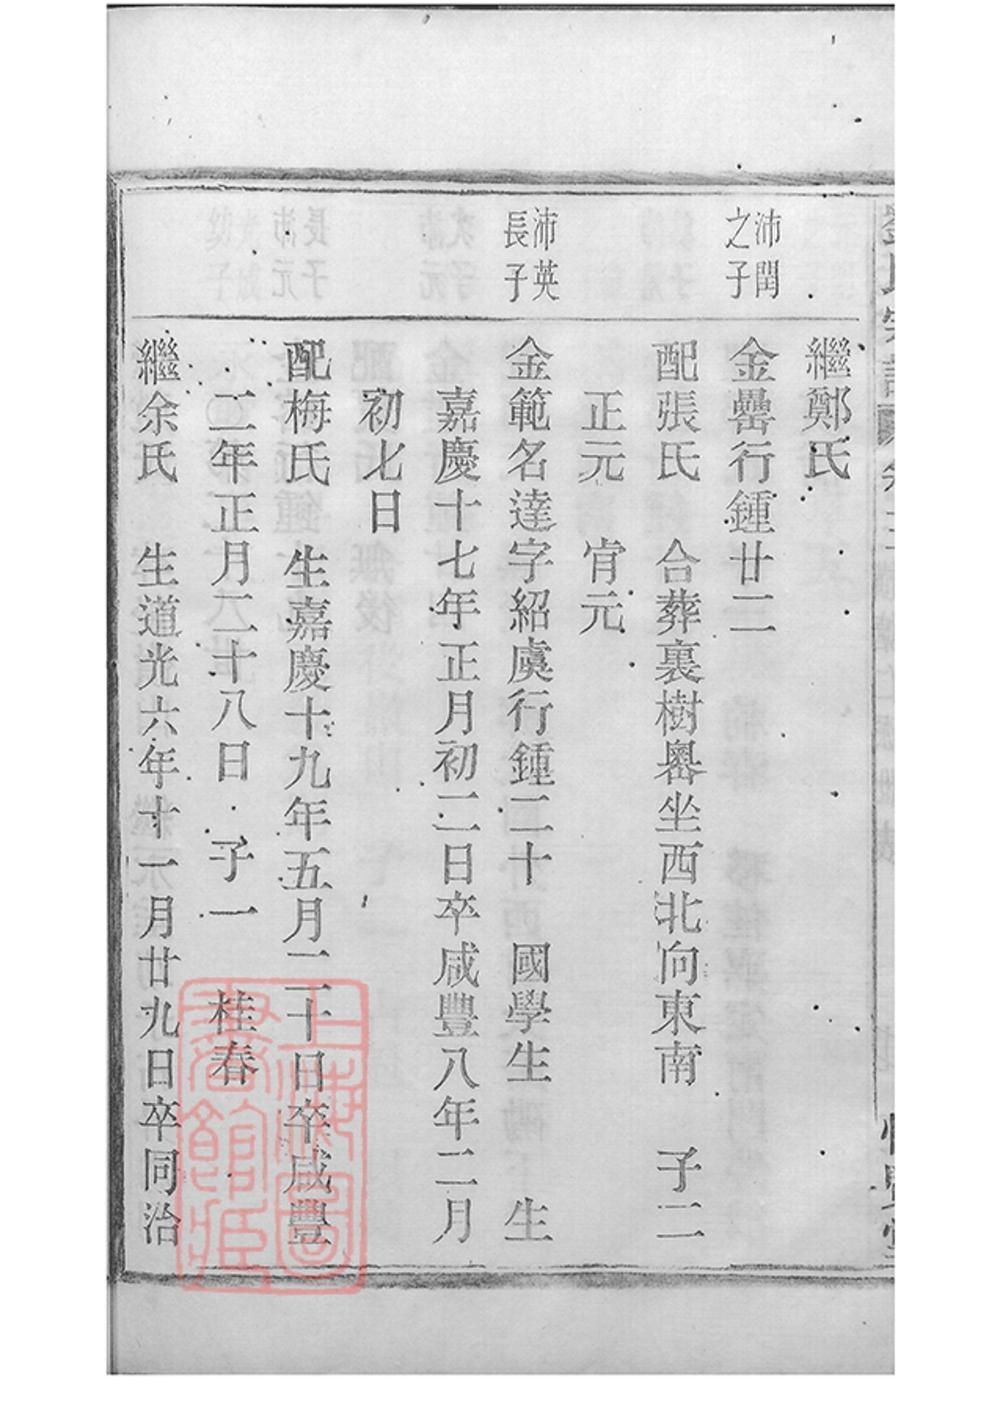 繼鄭氏
沛閏
之子
金罍行鍾廿二
配張氏 合葬裏樹嶴坐西北向東南 子二
正元 肯元
沛英
長子
金範名達字紹虞行鍾二十 國學生 生
嘉慶十七年正月初二日卒咸豐八年二月
初七日
配梅氏 生嘉慶十九年五月二十日卒咸豐
二年正月二十八日 子一 桂春
繼余氏 生道光六年十一月廿九日卒同治
上海圖
書館藏